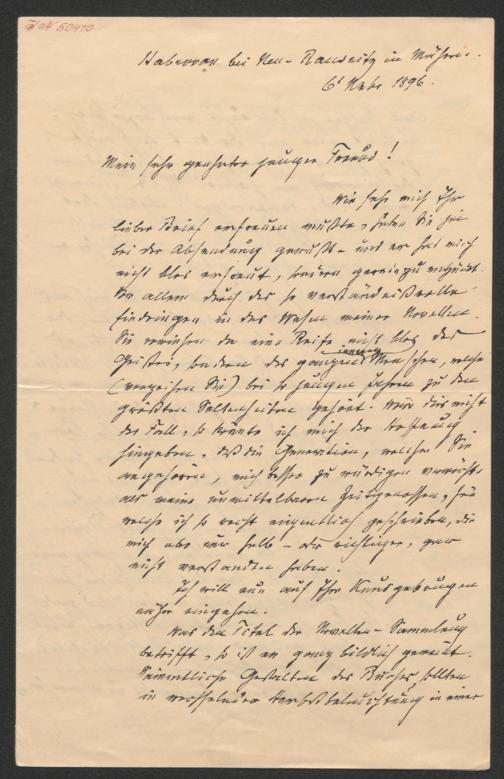 I.N. 50410
Habrovan bei Neu-Rausnitz in Mähren.
6t Nvbr 1896.
Mein sehr geehrter junger Freund!
Wie sehr mich Ihr
lieber Brief erfreuen mußte, haben Sie ja
bei der Absendung gewußt – und er hat mich
nicht blos erfreut, sondern geradezu entzückt.
Vor allem durch das so verständnißvolle
Eindringen in das Wesen meiner Novellen.
Sie erweisen da eine Reife nicht blos des
Geistes, sondern des ganzen inneren Menschen, welche
(verzeihen Sie) bei so jungen Jahren zu den
größten Seltenheiten gehört. Wär' dies nicht
der Fall, so könnte ich mich der Hoffnung
hingeben, daß die Generation, welcher Sie
angehören, mich besser zu würdigen vermöchte
als meine unmittelbaren Zeitgenossen, für
welche ich so recht eigentlich geschrieben, die
mich aber nur halb – oder richtiger, gar
nicht verstanden haben.
Ich will nun auf Ihre Kundgebungen
näher eingehen.
Was den Titel der Novellen-Sammlung
betrifft, so ist er ganz bildlich gemeint.
Sämmtliche Gestalten des Buches sollten
in wechselnder Herbstbeleuchtung in einer